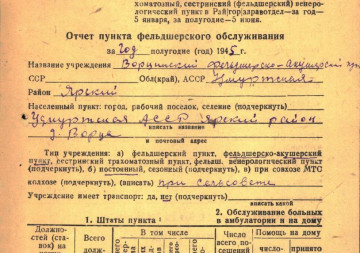 хоматозный, сестринский (фельдшерский) венеро-
логический пункт в Рай(гор)здравотдел—за год—
5 января, за полугодие—5 июня.
Отчет пункта фельдшерского обслуживания
за год полугодие (год) 1945 г.
Название учреждения Ворцинский фельдшерско-акушерский
ССР Обл(край), АССР Удмуртская
Район Ярский
Населенный пункт: город, рабочий поселок, селение (подчеркнуть)
Удмуртская АССР Ярский район
вписать название
Ворца
и почтовый адрес
Тип учреждения: а) фельдшерский пункт, фельдшерско-акушерский
пункт, сестринский трахоматозный пункт, фельдш. венерологический пункт
(подчеркнуть), б) постоянный, сезонный (подчеркнуть), в) при совхозе МТС
колхозе (подчеркнуть), (вписать) при сельсовете
Учреждение имеет транспорт: да, нет (подчеркнуть)
вписать название
1. Штаты пункта
2. Обслуживание больных
в амбулатории и на дому
Должно-
стей (став-
ок) на
Всего
долж-
В том числе
Число все-
го посе-
щений
Помощь на дому
число
принято